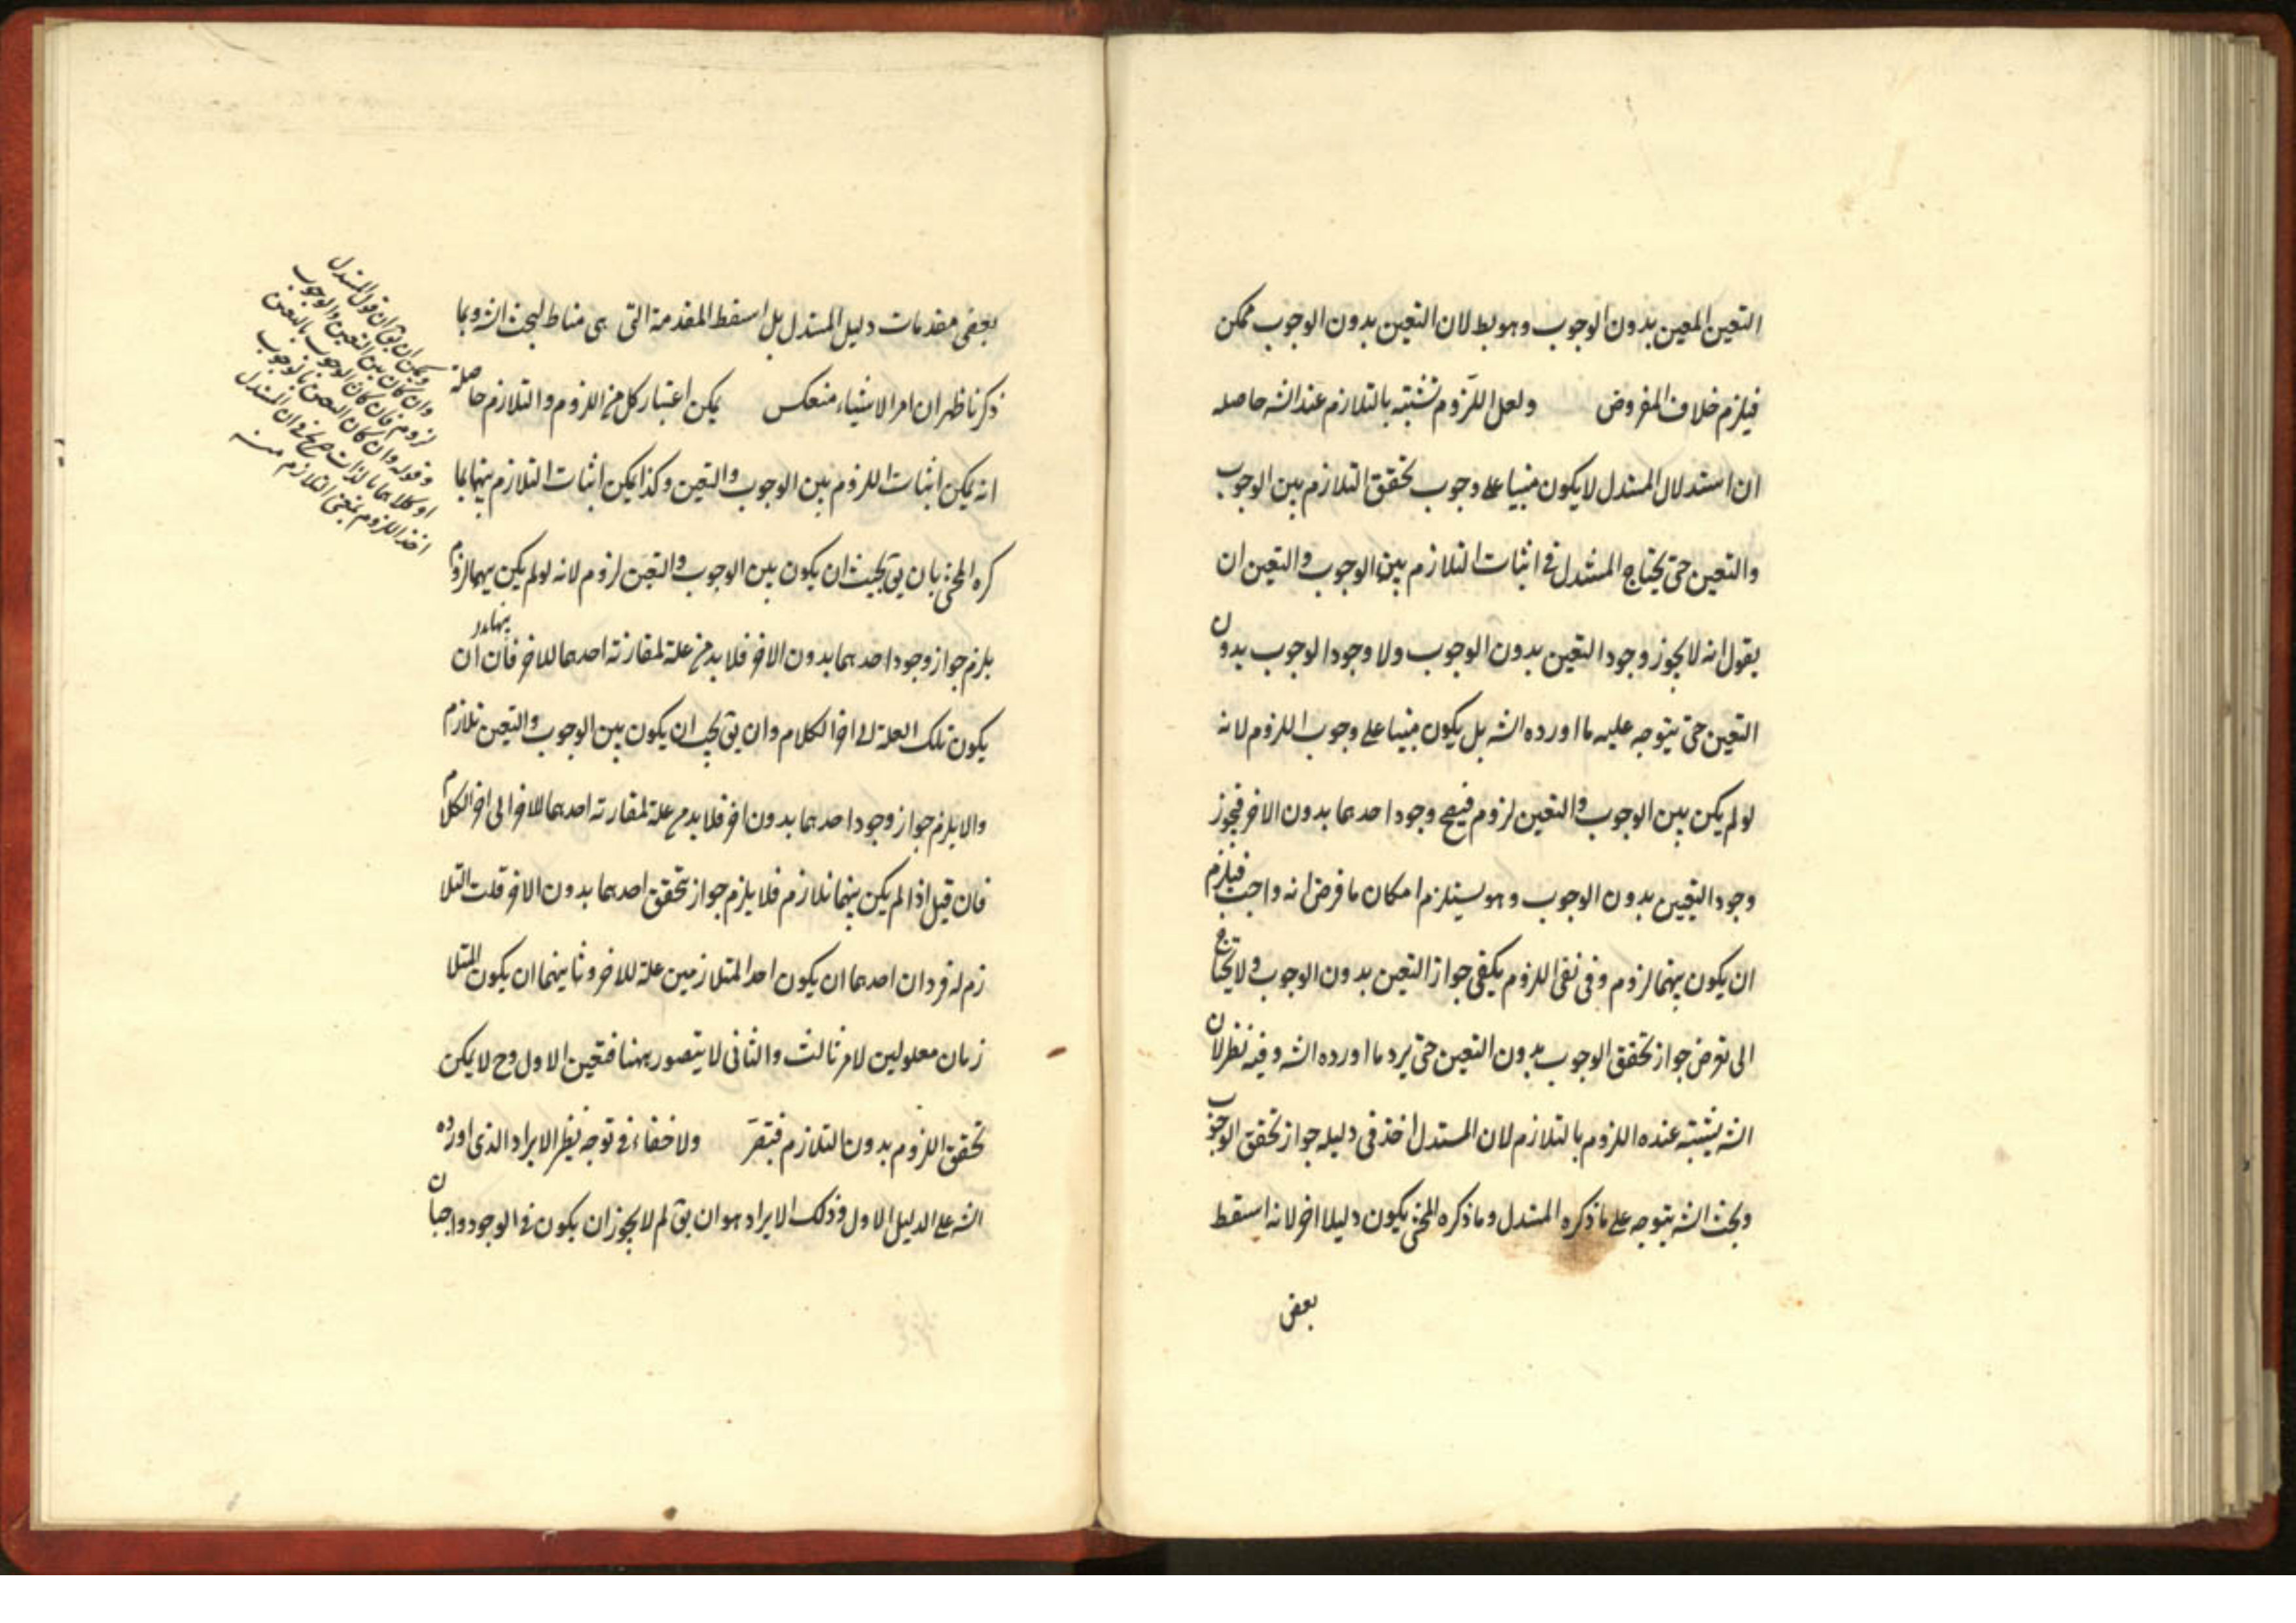 التعين المعين بدون الوجوب وهو بط لان التعين بدون الوجوب ممكن
فيلزم خلاف المفروض ولعل اللزوم تشتبه بالتلازم عند الشه حاصله
ان استدلال المستدل لا يكون مبنيا على وجوب تحقق التلازم بين الوجوب
والتعين حتى يحتاج المستدل فى اثبات التلازم بين الوجوب والتعين ان
يقول انه لا يجوز وجود التعين بدون الوجوب ولا وجود الوجوب بدون
التعين حتى يتوجه عليه ما اورده الشه بل يكون مبنيا على وجوب اللزوم لانه
لو لم يكن بين الوجوب والتعين لزوم فيصح وجود احدهما بدون الاخر فيجوز
وجود التعين بدون الوجوب وهو يستلزم امكان ما فرض انه واجب فيلزم
ان يكون بينهما لزوم وفى نفى اللزوم يكفى جواز التعين بدون الوجوب ولا يحتاج
الى تعرض جواز تحقق الوجوب بدون التعين حتى يرد ما اورده الشه وفيه نظر لان
الشه يشتبه عنده اللزوم بالتلازم لان المستدل اخذ فى دليله جواز تحقق الوجوب
وبحث الشه يتوجه على ما ذكره المستدل وما ذكره المحشى يكون دليلا اخر لانه اسقط
بعض
بعض مقدمات دليل المستدل بل اسقط المقدمة التى هى مناط لبحث الشه وبما
ذكرنا ظهر ان امر الاشياء منعكس يمكن اعتبار كل من اللزوم والتلازم حاصله
انه يمكن اثبات اللزوم بين الوجوب والتعين وكذا يمكن اثبات التلازم بينهما بما
كره المحشى بان يق يجب ان يكون بين الوجوب والتعين لزوم لانه لو لم يكن بينهما لزوم
يلزم جواز وجود احدهما بدون الاخر فلا بد من علة لمقارنة احدهما للاخر فان ان
يكون تلك العلة الى اخر الكلام وان يق يجب ان يكون بين الوجوب والتعين تلازم
والا يلزم جواز وجود احدهما بدون اخر فلا بد من علة لمقارنة احدهما للاخر الى اخر الكلام
فان قيل اذا لم يكن بينهما تلازم فلا يلزم جواز تحقق احدهما بدون الاخر قلت التلا
زم له فردان احدهما ان يكون احد المتلازمين علة للاخر وثانيهما ان يكون المتلا
زمان معلولين لامر ثالث والثانى لا يتصور ههنا فتعين الاول وح لا يمكن
تحقق اللزوم بدون التلازم فتقر ولا خفاء فى توجه نظر الايراد الذى اورده
الشه على الدليل الاول وذلك الايراد هو ان يق لم لا يجوز ان يكون فى الوجود واجبان
ويمكن ان يق ان قول المستدل
وان كان بين التعين والوجوب
لزوم فان كان الوجوب بالتعين
وقوله وان كان التعين بالوجوب
او كلاهما بالذات
اخذ اللزوم بمعنى التلازم منه